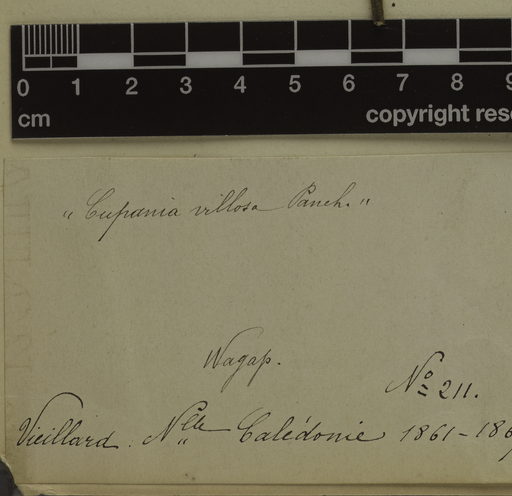 0 1 2 3 4 5 6 7 8 9
cm copyright rese
" Cupania villosa Panch. "
Wagap.
Nº 211.
Vieillard. Nlle Calédonie 1861-186